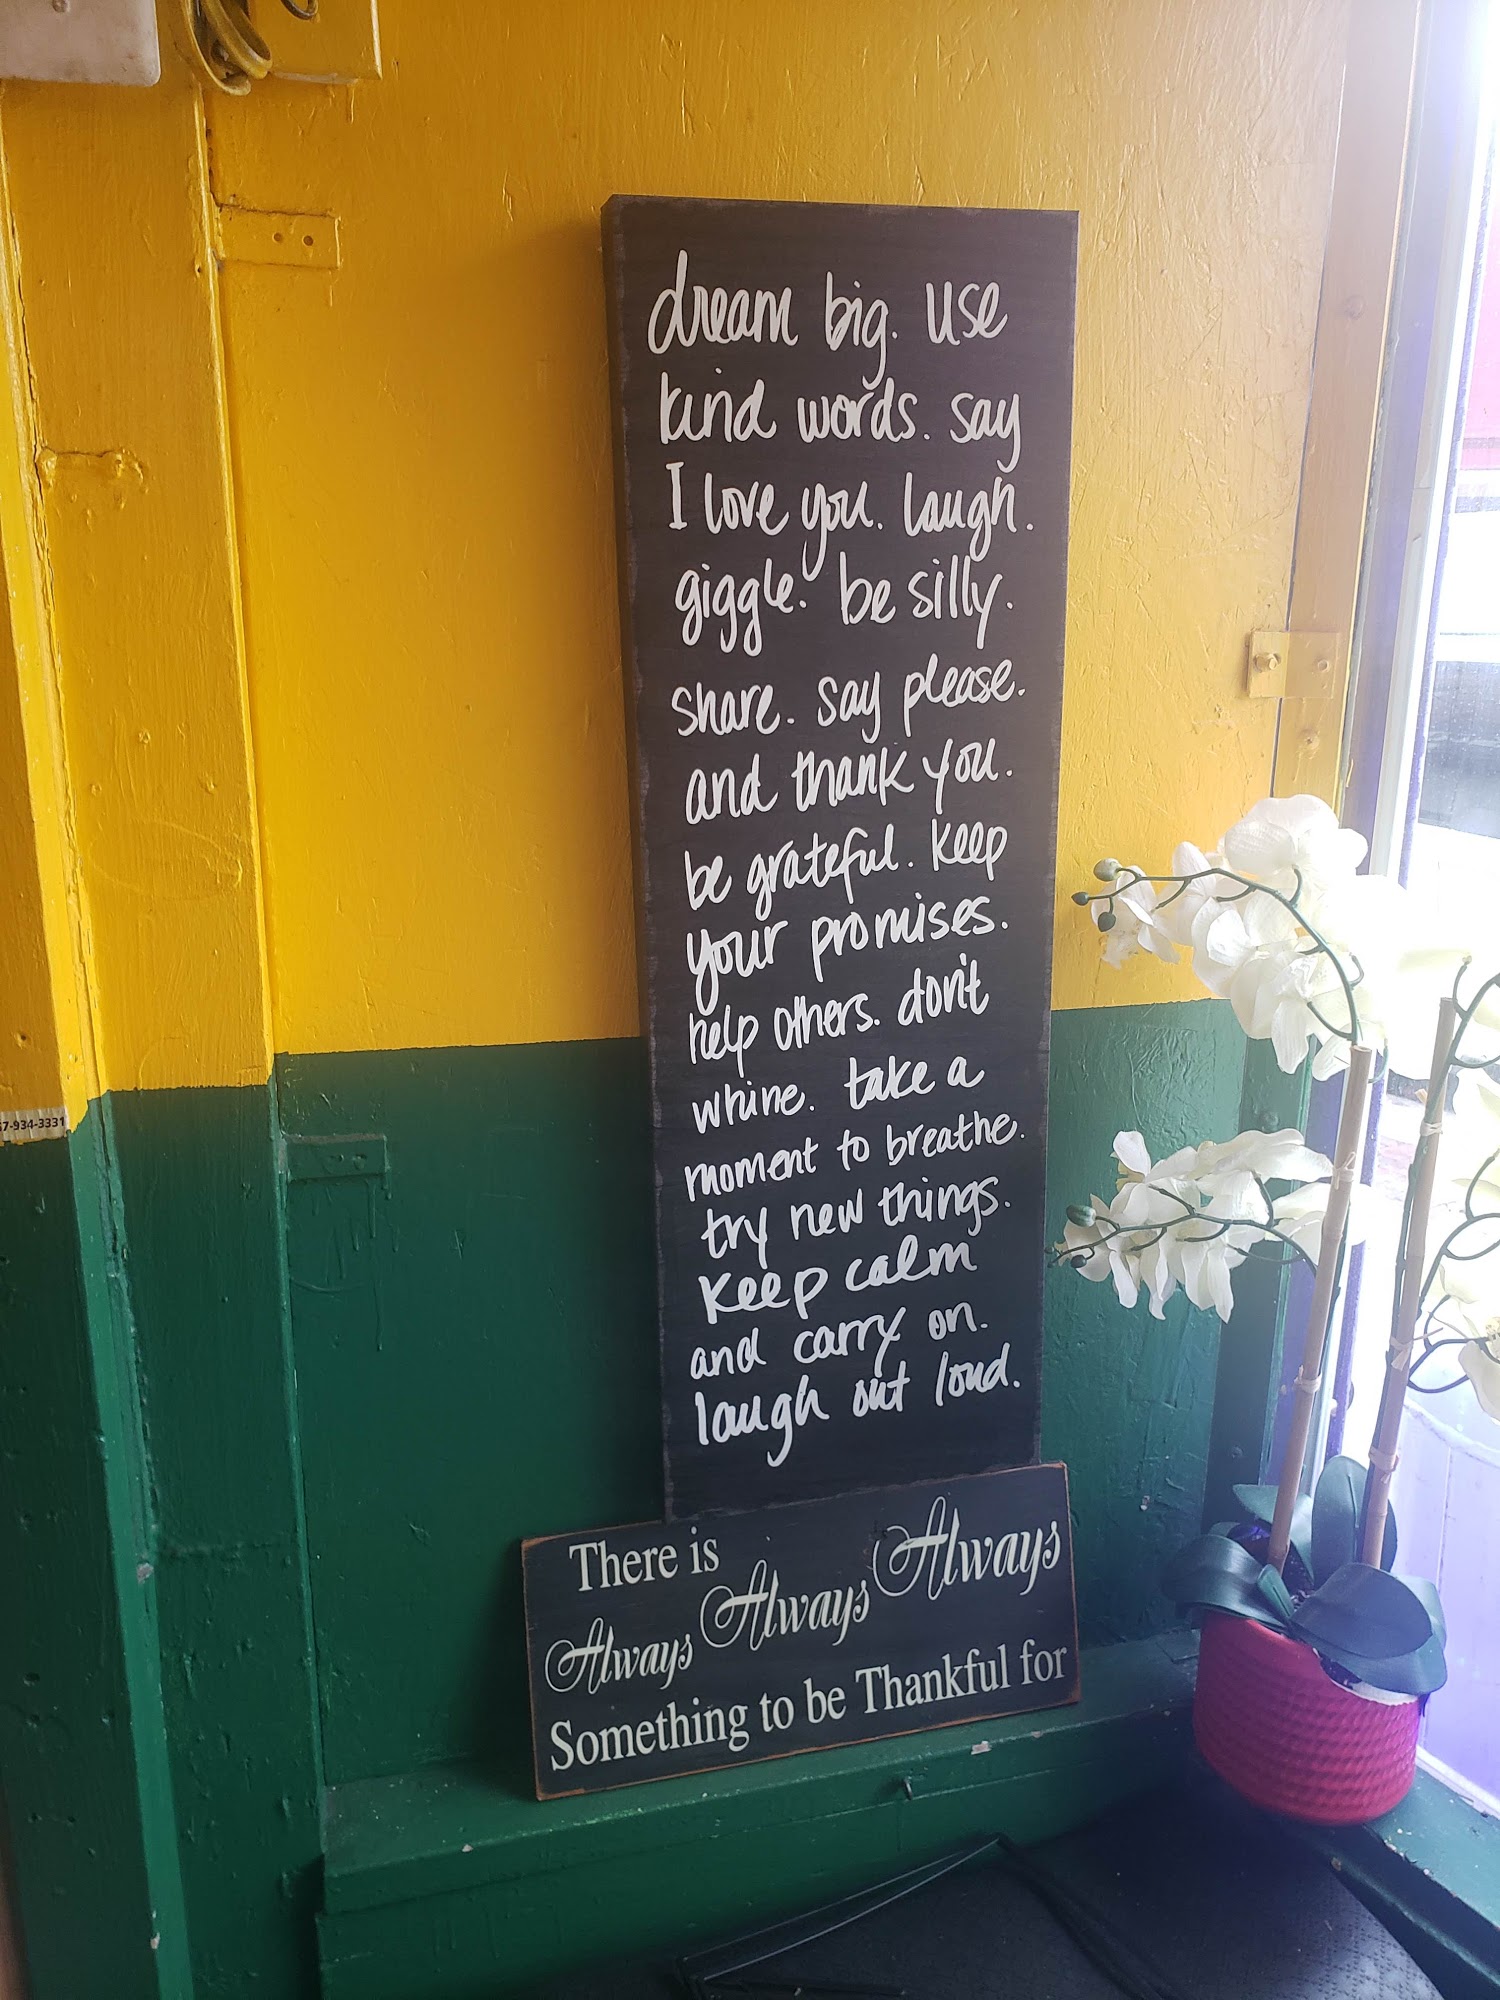 dream big. use
kind words. say
I love you. laugh.
giggle. be silly.
share. say please.
and thank you.
be grateful. keep
your promises.
help others. don't
whine. take a
moment to breathe.
try new things.
keep calm
and carry on.
laugh out loud.
There is
Always Always Always
Something to be Thankful for
7-934-3331